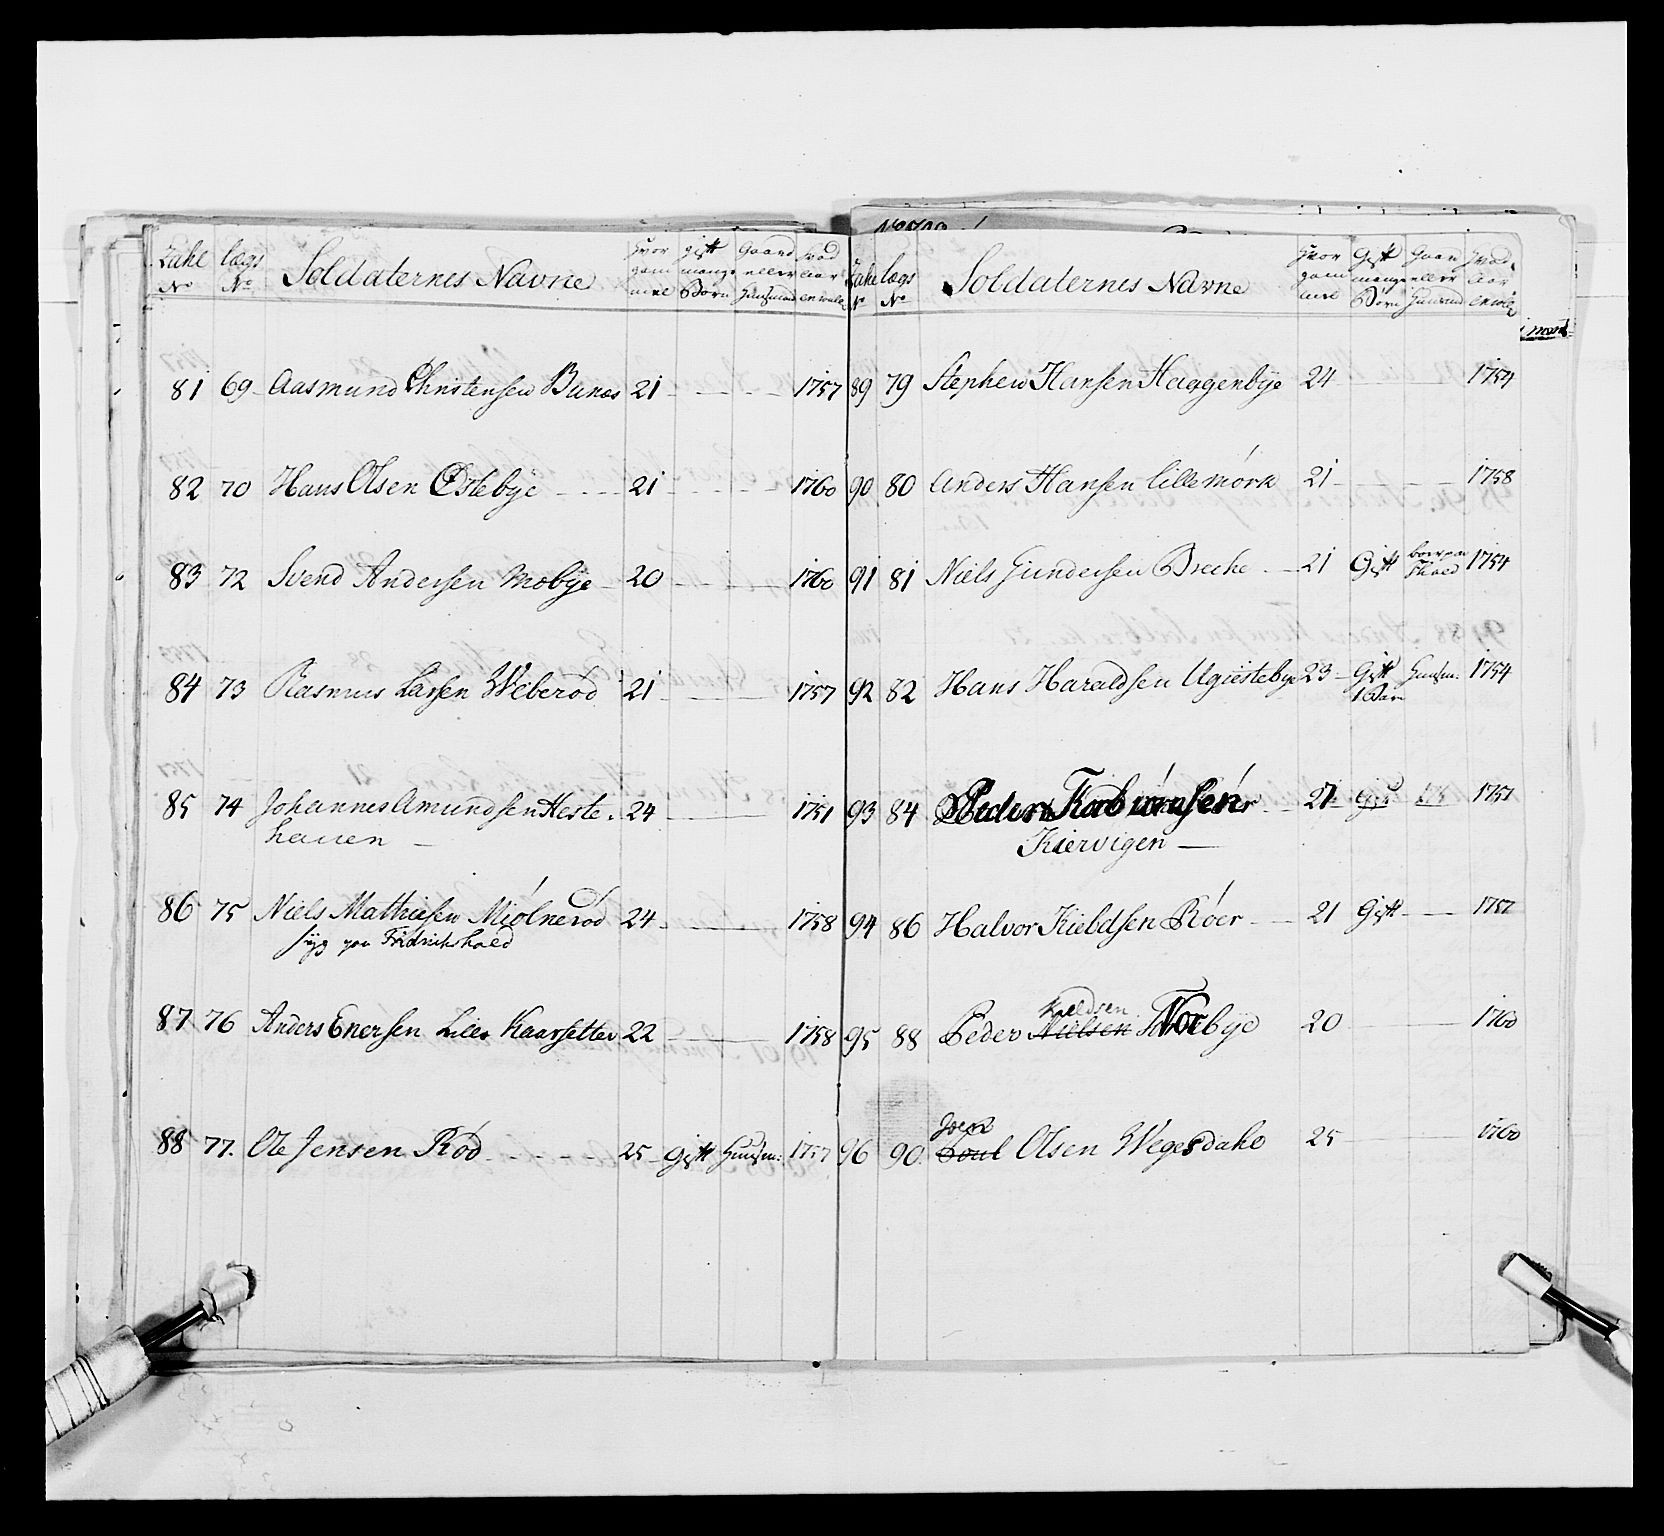 Zahl No | lægs No | Soldaternes Navne | Hvor gam mel | gift mange Børn | Gaard eller Huusmand | Hvad Aar enrole
81 69 Aasmund Christensen Bunæs 21 1757
82 70 Hans Olsen Østebye 21 1760
83 72 Svend Andersen Mobye 20 1760
84 73 Rasmus Larsen Weberød 21 1757
85 74 Johannes Amundsen Heste- 24 1751
hauen
86 75 Niels Mathiesen Miølnerød 24 1758
syg paa Fridrichshald
87 76 Anders Enersen Lille Kaarsetter 22 1758
88 77. Ole Jensen Rød 25 Gift Huusm: 1757
Zahl No | lægs No | Soldaternes Navne | Hvor gam mel | Gift mange Børn | Gaar eller Huusmd | Hvad Aar enrole
mand
89 79 Stephen Hansen Haggenbye 24 1754
90 80 Anders Hansen Lillemørk 21 1758
91 81 Niels Gundersen Breche 21 Gift boer paa Fhald 1754
92 82 Hans Haraldsen Ugiestebye 23 Gift Huusm: 1754
1 Barn
93 84 Peder Torbiønsen 21 1757
Kiervigen
94 86 Halvor Kieldsen Røer 21 Gift 1757
Kieldsen
95 88 Peder Nielsen Torebye 20 1760
Joen
96 90. Poul Olsen Wegesdahl 25 1760